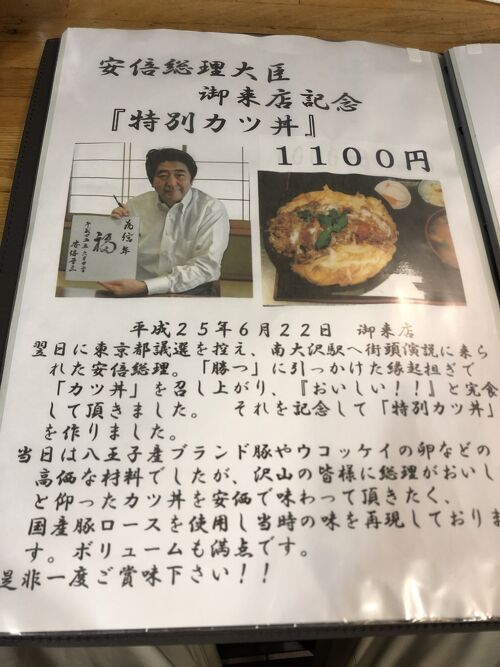 安倍総理大臣
御来店記念
『特別カツ丼』
１１００円
為信年
福
安倍晋三
平成２５年６月２２日　御来店
翌日に東京都議選を控え、南大沢駅へ街頭演説に来ら
れた安倍総理。「勝つ」に引っかけた縁起担ぎで
「カツ丼」を召し上がり、『おいしい！！』と完食
して頂きました。　それを記念して「特別カツ丼」
を作りました。
当日は八王子産ブランド豚やウコッケイの卵などの
高価な材料でしたが、沢山の皆様に総理がおいし
と仰ったカツ丼を安価で味わって頂きたく、
国産豚ロースを使用し当時の味を再現しておりま
す。ボリュームも満点です。
是非一度ご賞味下さい！！